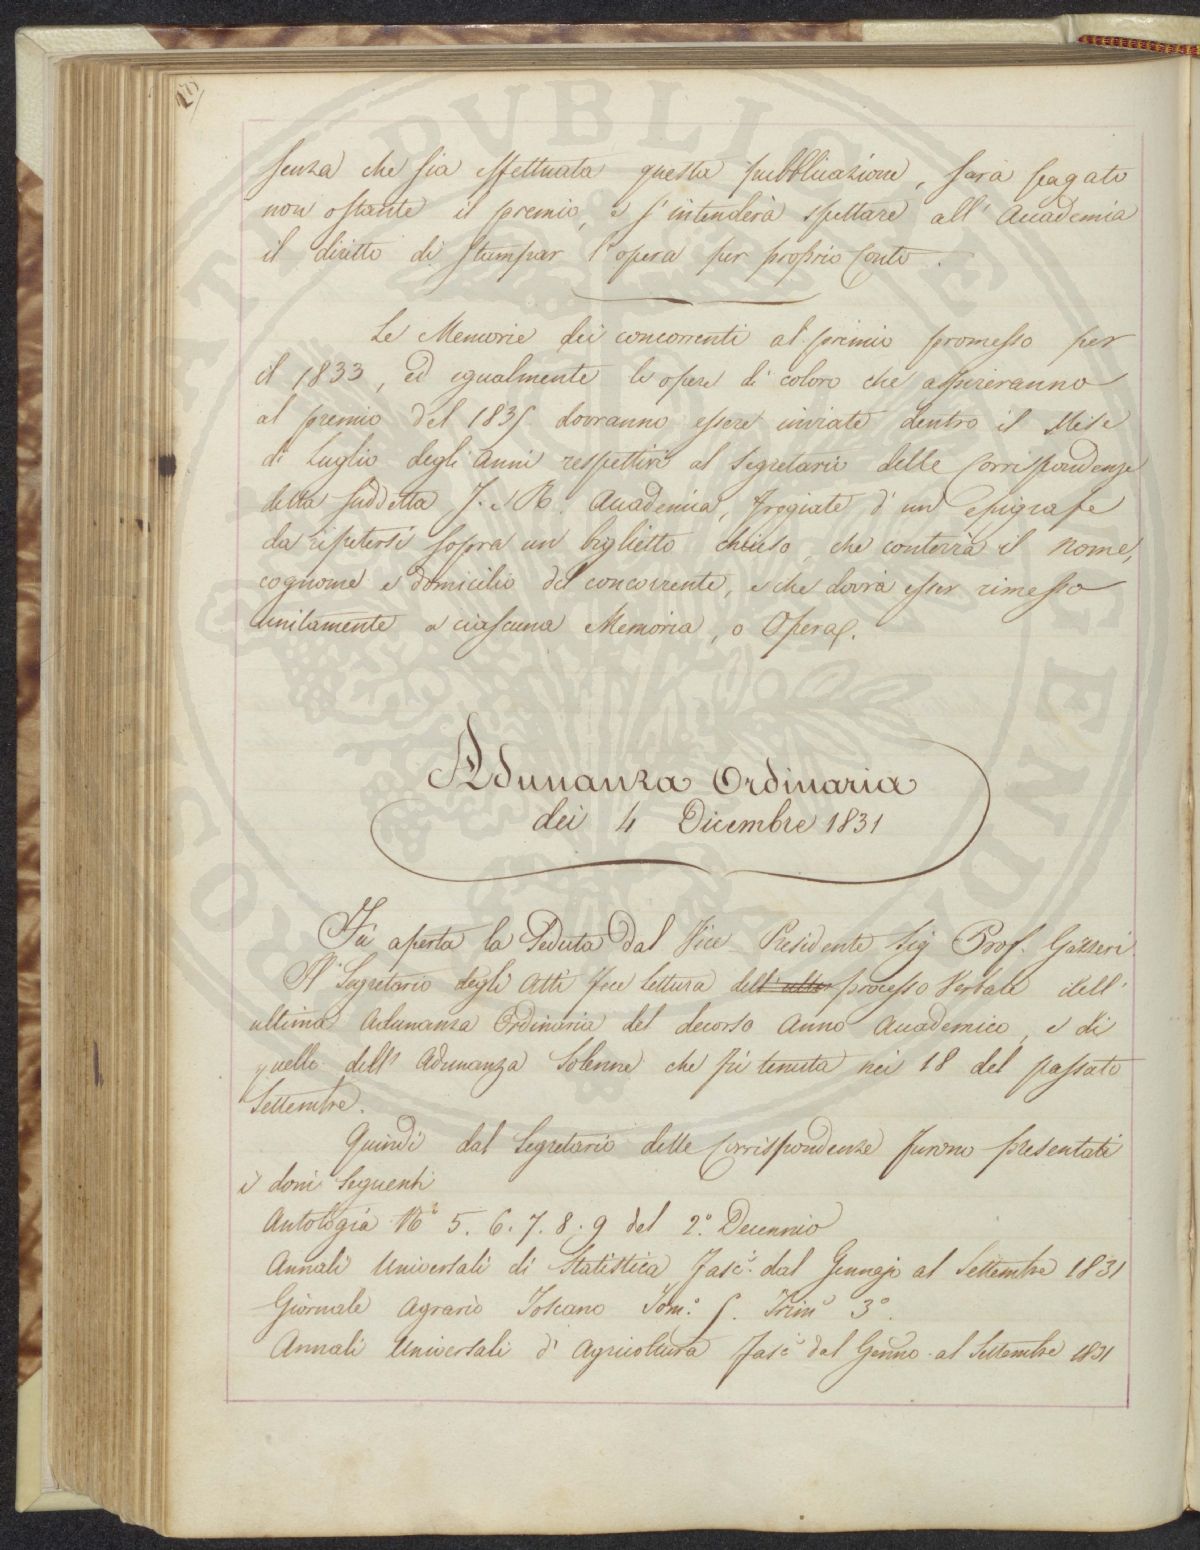 senza che sia effettuata questa pubblicazione, sarà pagato
non ostante il premio, e s'intenderà spettare all'Accademia
il diritto di stampar l'opera per proprio Conto.
Le Memorie dei concorrenti al premio promesso per
il 1833, ed egualmente le opere di coloro che aspireranno
al premio del 1835 dovranno essere inviate dentro il Mese
di Luglio degli Anni respettivi al Segretario delle Corrispondenze
della suddetta I. e R. Accademia, fregiate d'un epigrafe
da ripetersi sopra un biglietto chiuso, che conterrà il nome,
cognome e domicilio del concorrente, e che dovrà esser rimesso
unitamente a ciascuna Memoria, o Opera.
Adunanza Ordinaria
dei 4 Dicembre 1831
Fù aperta la Seduta dal Vice Presidente Sig Prof. Gazzeri.
Il Segretario degli Atti fece lettura dell'ulti processo Verbale dell'
ultima Adunanza Ordinaria del decorso Anno Accademico, e di
quello dell'Adunanza Solenne che fù tenuta nei 18 del passato
Settembre.
Quindi dal Segretario delle Corrispondenze furono presentati
i doni seguenti
Antologia Ni 5. 6. 7. 8. 9 del 2.° Decennio
Annali Universali di Statistica Fasci. dal Gennajo al Settembre 1831
Giornale Agrario Toscano Tom.° 5. Trime 3°.
Annali Universali d'Agricoltura Fasci dal Genno. al Settembre 1831
PUBLICE